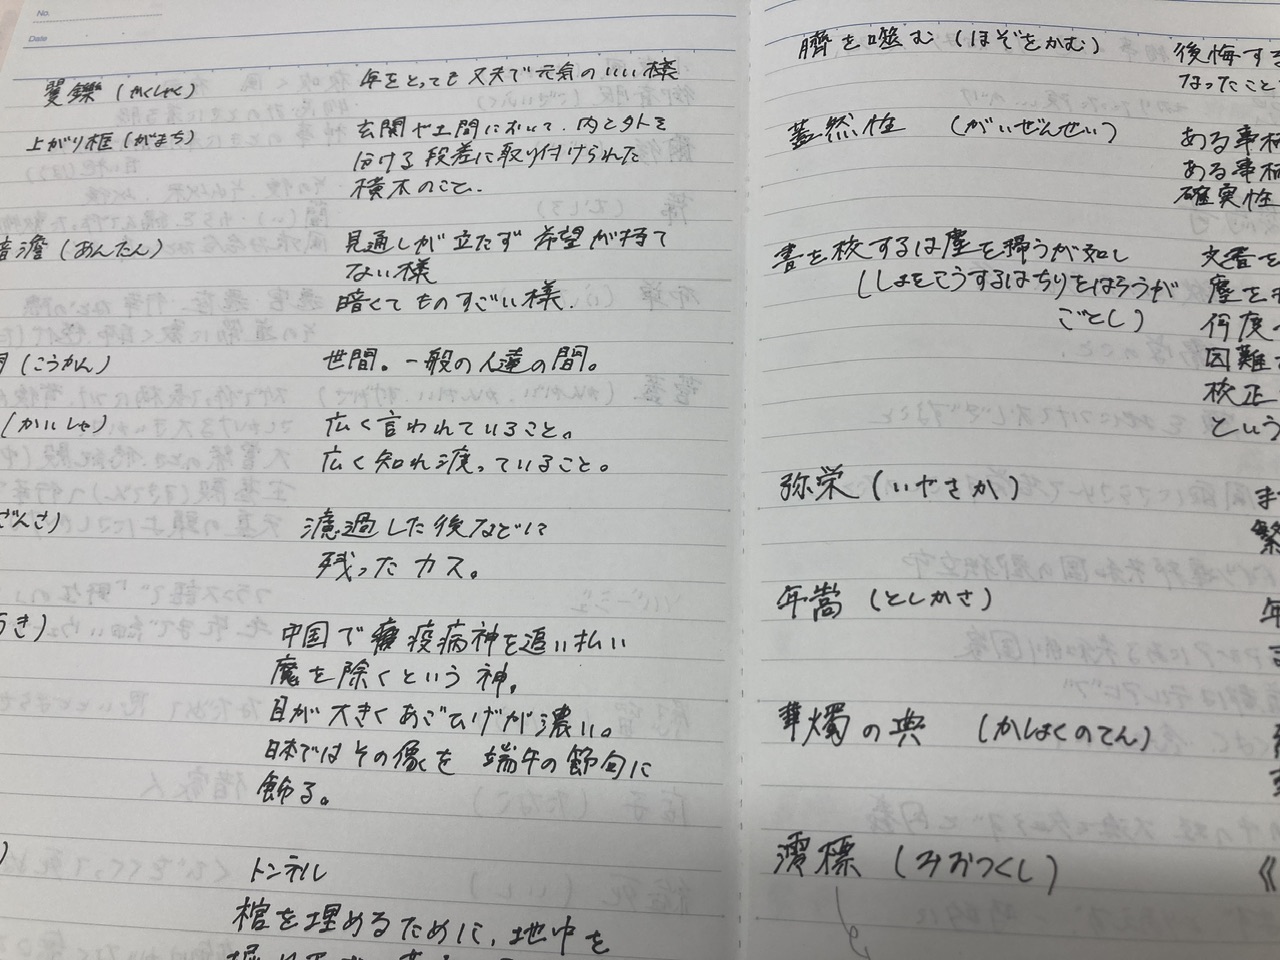 No.
Date
矍鑠 (かくしゃく) 年をとっても丈夫で元気のいい様
上がり框 (がまち) 玄関や土間において、内と外を
分ける段差に取り付けられた
横木のこと.
澹 (あんたん) 見通しが立たず 希望が持て
ない様
暗くてものすごい様.
(こうかん) 世間。一般の人達の間。
(かいしゃ) 広く言われていること。
広く知れ渡っていること。
ざんさ) 濾過した後などに
残ったカス。
うき) 中国で疫病神を追い払い
魔を除くという神。
目が大きくあごひげが濃い。
日本ではその像を 端午の節句に
飾る。
) トンネル
棺を埋めるために、地中を
臍を噬む (ほぞをかむ) 後悔する
なったこと
蓋然性 (がいぜんせい) ある事柄
ある事柄
確実性
書を校するは塵を掃うが如し 文書を
(しょをこうするはちりをはろうが 塵を
ごとし) 何度
困難
校正
という
弥栄 (いやさか) ま
繁
年嵩 (としかさ) 年
華燭の典 (かしょくのてん)
澪標 (みおつくし) 《